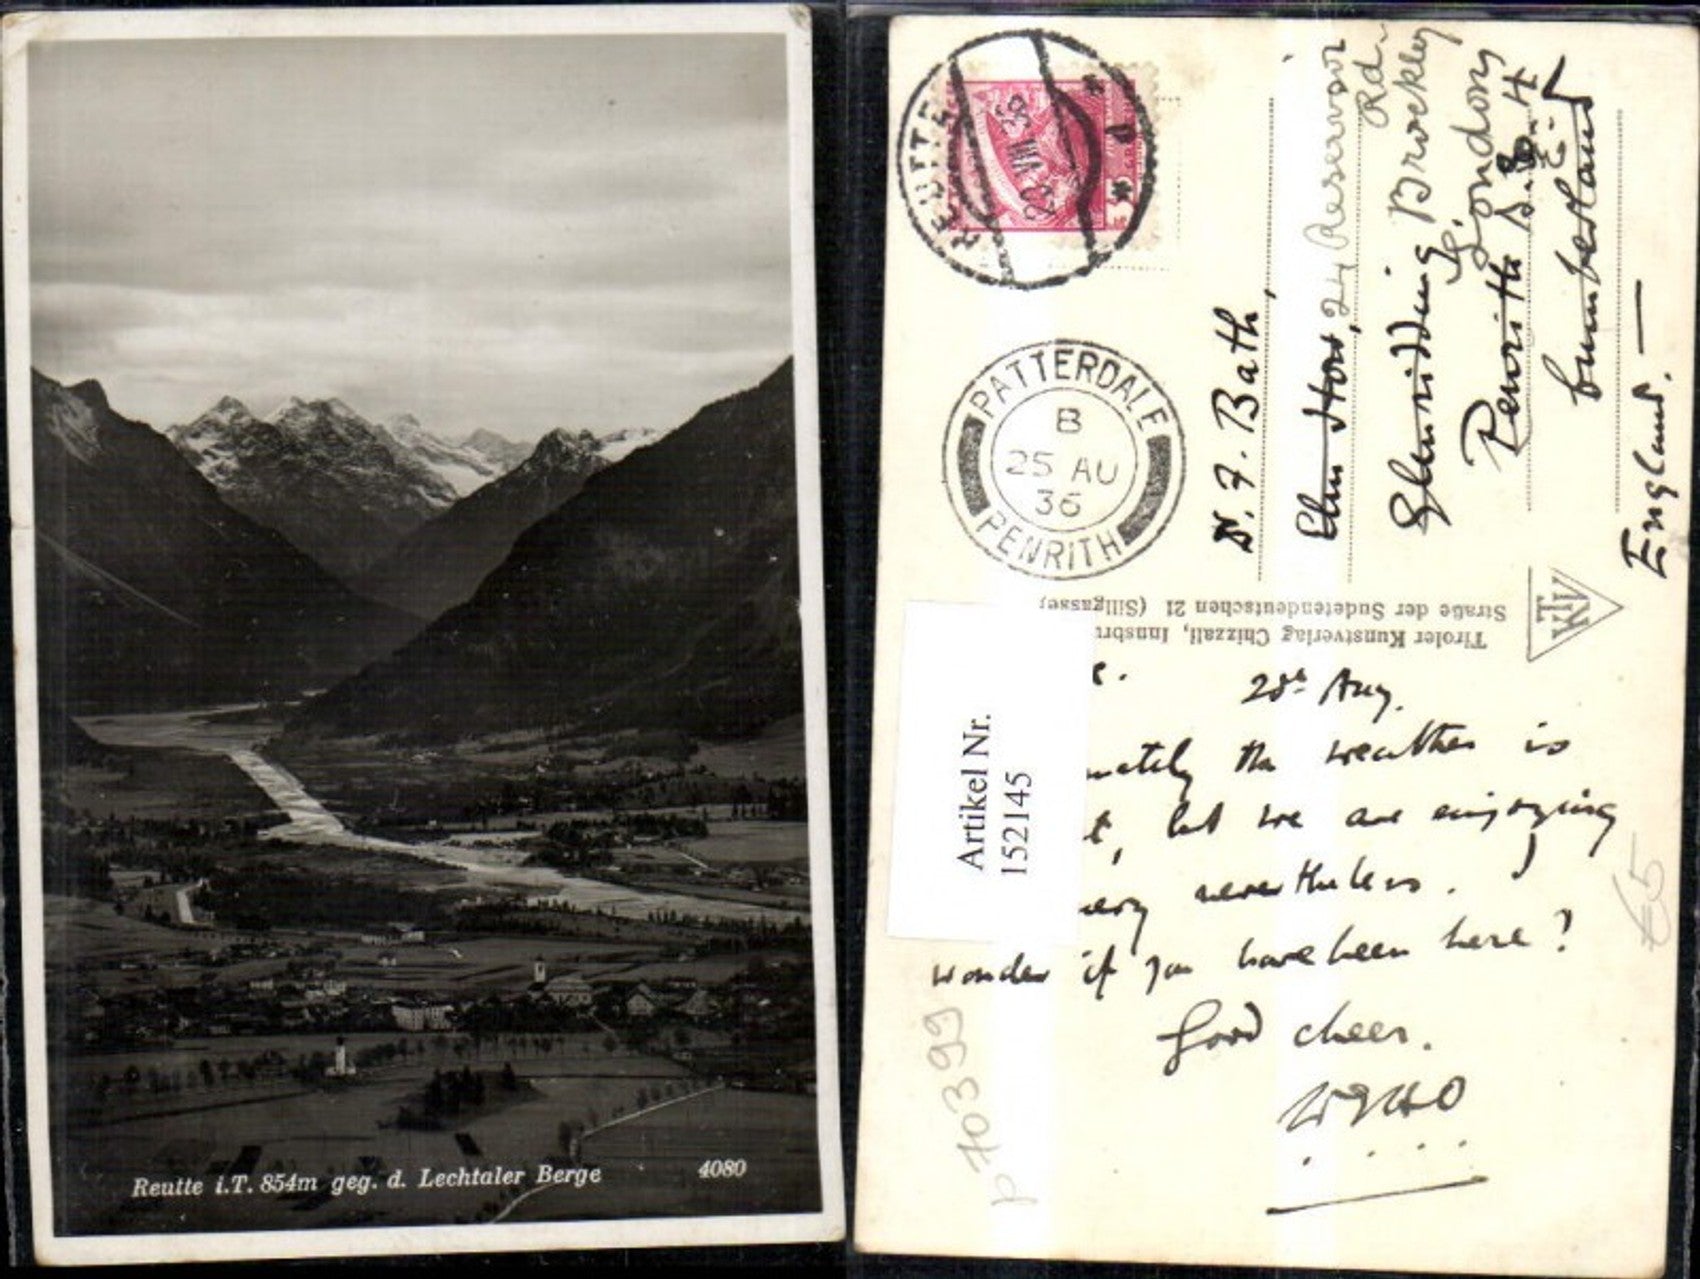 Reutte i.T. 854m geg. d. Lechtaler Berge
4080
REUTTE
P
PATTERDALE
B
25 AU
36
PENRITH
D. F. Bath,
Elm How, 24 Reservoir
Rd.
Glenridding Brockley
London
Penrith S.E.4
Cumberland
England.
Tiroler Kunstverlag Chizzali, Innsbru
Straße der Sudetendeutschen 21 (Sillgasse)
KTV
Artikel Nr.
152145
Aug.
nately the weather is
t, but we are enjoying
nevertheless.
wonder if you have been here?
Good cheer.
p 70399
€5